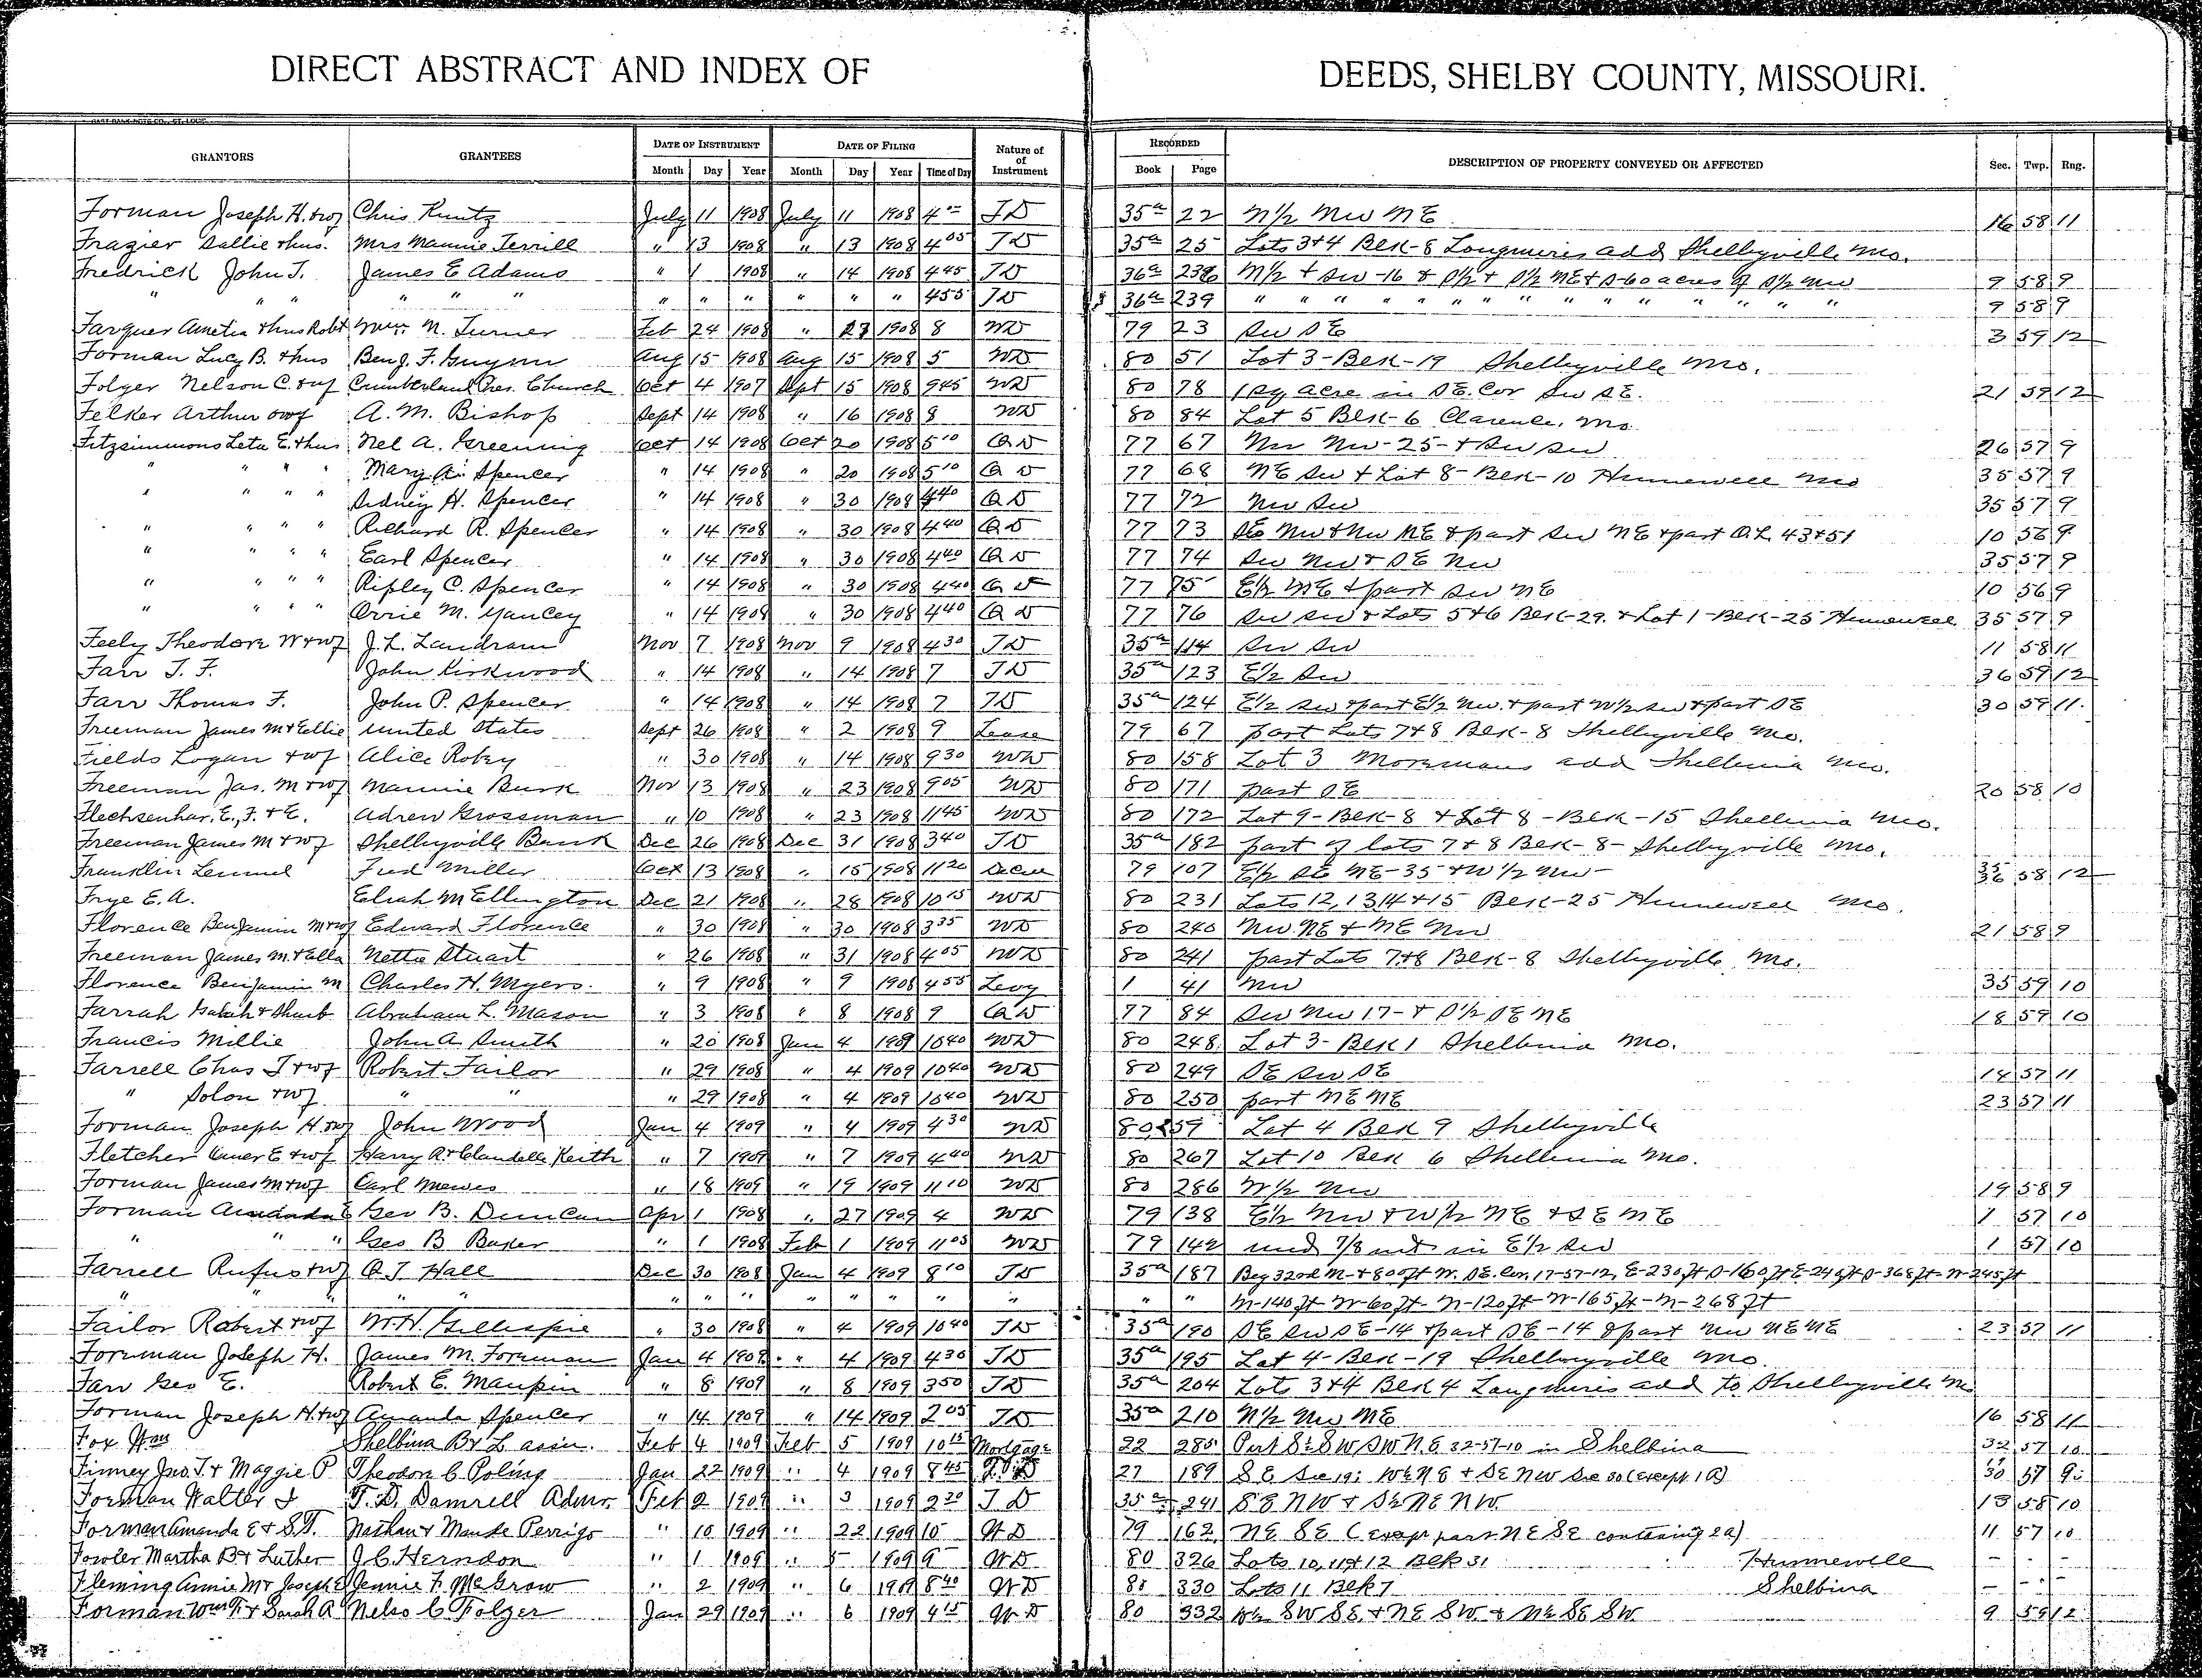 DIRECT ABSTRACT AND INDEX OF DEEDS, SHELBY COUNTY, MISSOURI.
GRANTORS GRANTEES DATE OF INSTRUMENT DATE OF FILING Nature of of Instrument RECORDED DESCRIPTION OF PROPERTY CONVEYED OR AFFECTED Sec. Twp. Rng.
Month Day Year Month Day Year Time of Day Book Page
Forman Joseph H. & wf Chris Kuntz July 11 1908 July 11 1908 4 00 T D 35a 22 N1/2 NW NE 16 58 11
Frazier Sallie & hus. Mrs Mamie Terrill " 13 1908 " 13 1908 4 05 T D 35a 25 Lots 3+4 Blk-8 Longmires add Shelbyville Mo.
Fredrick John T. James E Adams " 1 1908 " 14 1908 4 45 T D 36a 238 N1/2 + SW-16 & S1/2 + S1/2 NE + S-60 acres of S1/2 NW 9 58 9
" " " " " " " " " " " " 4 55 T D 36a 239 " " " " " " " " " " " " " 9 58 9
Farquer Ametia & hus Robt M. Turner Feb 24 1908 " 23 1908 8 WD 79 23 SW SE 3 59 12
Forman Lucy B. & hus Benj. F. Guynn Aug 15 1908 Aug 15 1908 5 WD 80 51 Lot 3-Blk-19 Shelbyville Mo.
Folger Nelson C. & wf Cumberland Pres. Church Oct 4 1907 Sept 15 1908 9 45 WD 80 78 1 sq acre in SE. Cor SW SE. 21 59 12
Felker Arthur & wf A. M. Bishop Sept 14 1908 " 16 1908 8 WD 80 84 Lot 5 Blk-6 Clarence, Mo.
Fitzsimmons Leta E. & hus Nel A. Greening Oct 14 1908 Oct 20 1908 5 10 Q D 77 67 NW NW-25-+ SW SW 26 57 9
" " " " Mary A. Spencer " 14 1908 " 20 1908 5 10 Q D 77 68 NE SW + Lot 8-Blk-10 Hunnewell Mo 35 57 9
" " " " Sidney H. Spencer " 14 1908 " 30 1908 4 40 Q D 77 72 NW SW 35 57 9
" " " " Richard R. Spencer " 14 1908 " 30 1908 4 40 Q D 77 73 SE NW + NW NE + part SW NE + part O.L. 43+51 10 56 9
" " " " Earl Spencer " 14 1908 " 30 1908 4 40 Q D 77 74 SW NW + SE NW 35 57 9
" " " " Ripley C. Spencer " 14 1908 " 30 1908 4 40 Q D 77 75 E1/2 NE + part SW NE 10 56 9
" " " " Orrie M. Yancey " 14 1908 " 30 1908 4 40 Q D 77 76 SW SW + Lots 5+6 Blk-29. + Lot 1-Blk-25 Hunnewell 35 57 9
Feely Theodore W & wf J. L. Landram Nov 7 1908 Nov 9 1908 4 30 T D 35a 114 SW SW 11 58 11
Farr T. F. John Kirkwood " 14 1908 " 14 1908 7 T D 35a 123 E1/2 SW 36 59 12
Farr Thomas F. John P. Spencer " 14 1908 " 14 1908 7 T D 35a 124 E1/2 SW + part E1/2 NW. + part W1/2 SW + part SE 30 59 11
Freeman James M & Ellie United States Sept 26 1908 " 2 1908 9 Lease 79 67 part Lots 7+8 Blk-8 Shelbyville Mo.
Fields Logan & wf Alice Robey " 30 1908 " 14 1908 9 30 WD 80 158 Lot 3 add Shelbina Mo.
Freeman Jas. M & wf Mamie Burk Nov 13 1908 " 23 1908 9 05 WD 80 171 part SE 20 58 10
Flechsenhar, E., F. & E. Adrew Grossman " 10 1908 " 23 1908 11 45 WD 80 172 Lot 9-Blk-8 + Lot 8-Blk-15 Shelbina Mo.
Freeman James M & wf Shelbyville Bank Dec 26 1908 Dec 31 1908 3 40 T D 35a 182 part of lots 7+8 Blk-8-Shelbyville Mo.
Franklin Lemuel Fred Miller Oct 13 1908 " 15 1908 11 20 Decree 79 107 E1/2 SE NE-35 + W1/2 NW- 35 36 58 12
Frye E. A. Eliah M Ellington Dec 21 1908 " 28 1908 10 15 WD 80 231 Lots 12, 13 14 + 15 Blk-25 Hunnewell Mo.
Florence Benjamin M & wf Edward Florence " 30 1908 " 30 1908 3 35 WD 80 240 NW. NE + NE NW 21 58 9
Freeman James M. & Ella Nettie Stuart " 26 1908 " 31 1908 4 05 WD 80 241 part Lots 7+8 Blk-8 Shelbyville Mo.
Florence Benjamin M Charles H. Myers. " 9 1908 " 9 1908 4 55 Levy 1 41 NW 35 59 10
Farrah Abraham L. Mason " 3 1908 " 8 1908 9 Q D 77 84 SW NW 17-+ S1/2 SE NE 18 59 10
Francis Millie John A. Smith " 20 1908 Jan 4 1909 10 40 WD 80 248 Lot 3-Blk 1 Shelbina Mo.
Farrell Chas T & wf Robert Failor " 29 1908 " 4 1909 10 40 WD 80 249 SE SW SE 14 57 11
" Solon & wf " " " 29 1908 " 4 1909 10 40 WD 80 250 part NE NE 23 57 11
Forman Joseph H. & wf John Wood Jan 4 1909 " 4 1909 4 30 WD 80 259 Lot 4 Blk 9 Shelbyville
Fletcher Omer E & wf Harry A. & Claudelle Keith " 7 1909 " 7 1909 4 40 WD 80 267 Lot 10 Blk 6 Shelbina Mo.
Forman James M & wf Carl Mewes " 18 1909 " 19 1909 11 10 WD 80 286 W1/2 NW 19 58 9
Forman Amanda E Geo B. Duncan Apr 1 1908 " 27 1909 4 WD 79 138 E1/2 NW + W1/2 NE + SE NE 1 57 10
" " " Geo B Baker " 1 1908 Feb 1 1909 11 05 WD 79 142 und 7/8 int in E1/2 SW 1 57 10
Farrell Rufus & wf Q. T. Hall Dec 30 1908 Jan 4 1909 8 10 T D 35a 187 Beg 32rd N-+ 800ft W. SE. Cor. 17-57-12, E-230ft S-160ft E-245ft S-368ft-W-245ft
" " " " " " " " " " " " " " " N-140ft-W-60ft-N-120ft-W-165ft-N-268ft
Failor Robert & wf W. H. Gillespie " 30 1908 " 4 1909 10 40 T D 35a 190 SE SW SE-14 + part SE-14 & part NW NE NE 23 57 11
Forman Joseph H. James M. Foreman Jan 4 1909 " 4 1909 4 30 T D 35a 195 Lot 4-Blk-19 Shelbyville Mo.
Farr Geo E. Robert E. Maupin " 8 1909 " 8 1909 3 50 T D 35a 204 Lots 3+4 Blk 4 Longmires add to Shelbyville Mo
Forman Joseph H. & wf Amanda Spencer " 14 1909 " 14 1909 2 05 T D 35a 210 N1/2 NW NE 16 58 11
Fox Wm Shelbina B & L assn. Feb 4 1909 Feb 5 1909 10 15 Mortgage 22 285 Part S1/2 SW SW N.E 32-57-10 in Shelbina 32 57 10
Finney Jno. T. & Maggie P Theodore C Poling Jan 22 1909 " 4 1909 8 45 T D 27 189 S E Sec 19; W1/2 N E + SE NW Sec 30 (Except 1 A) 19 30 57 9
Forman Walter T. D. Damrell Admr. Feb 2 1909 " 3 1909 2 30 T D 35a 241 S E NW + S1/2 NE NW. 13 58 10
Forman Amanda E & S.T. Nathan & Maude Perrigo " 10 1909 " 22 1909 10 W D 79 162 NE SE (except part NE SE containing 2a) 11 57 10
Fowler Martha B & Luther J. C. Herndon " 1 1909 " 5 1909 9 W D 80 326 Lots 10, 11 & 12 Blk 31 Hunnewell - - -
Fleming Annie M & Joseph E Jennie F. McGrow " 2 1909 " 6 1909 8 40 W D 80 330 Lots 11 Blk 7 Shelbina - - -
Forman Wm F & Sarah A Nelso C Folger Jan 29 1909 " 6 1909 4 15 W D 80 332 W1/2 SW SE + NE SW. + N1/2 SE SW 9 59 12